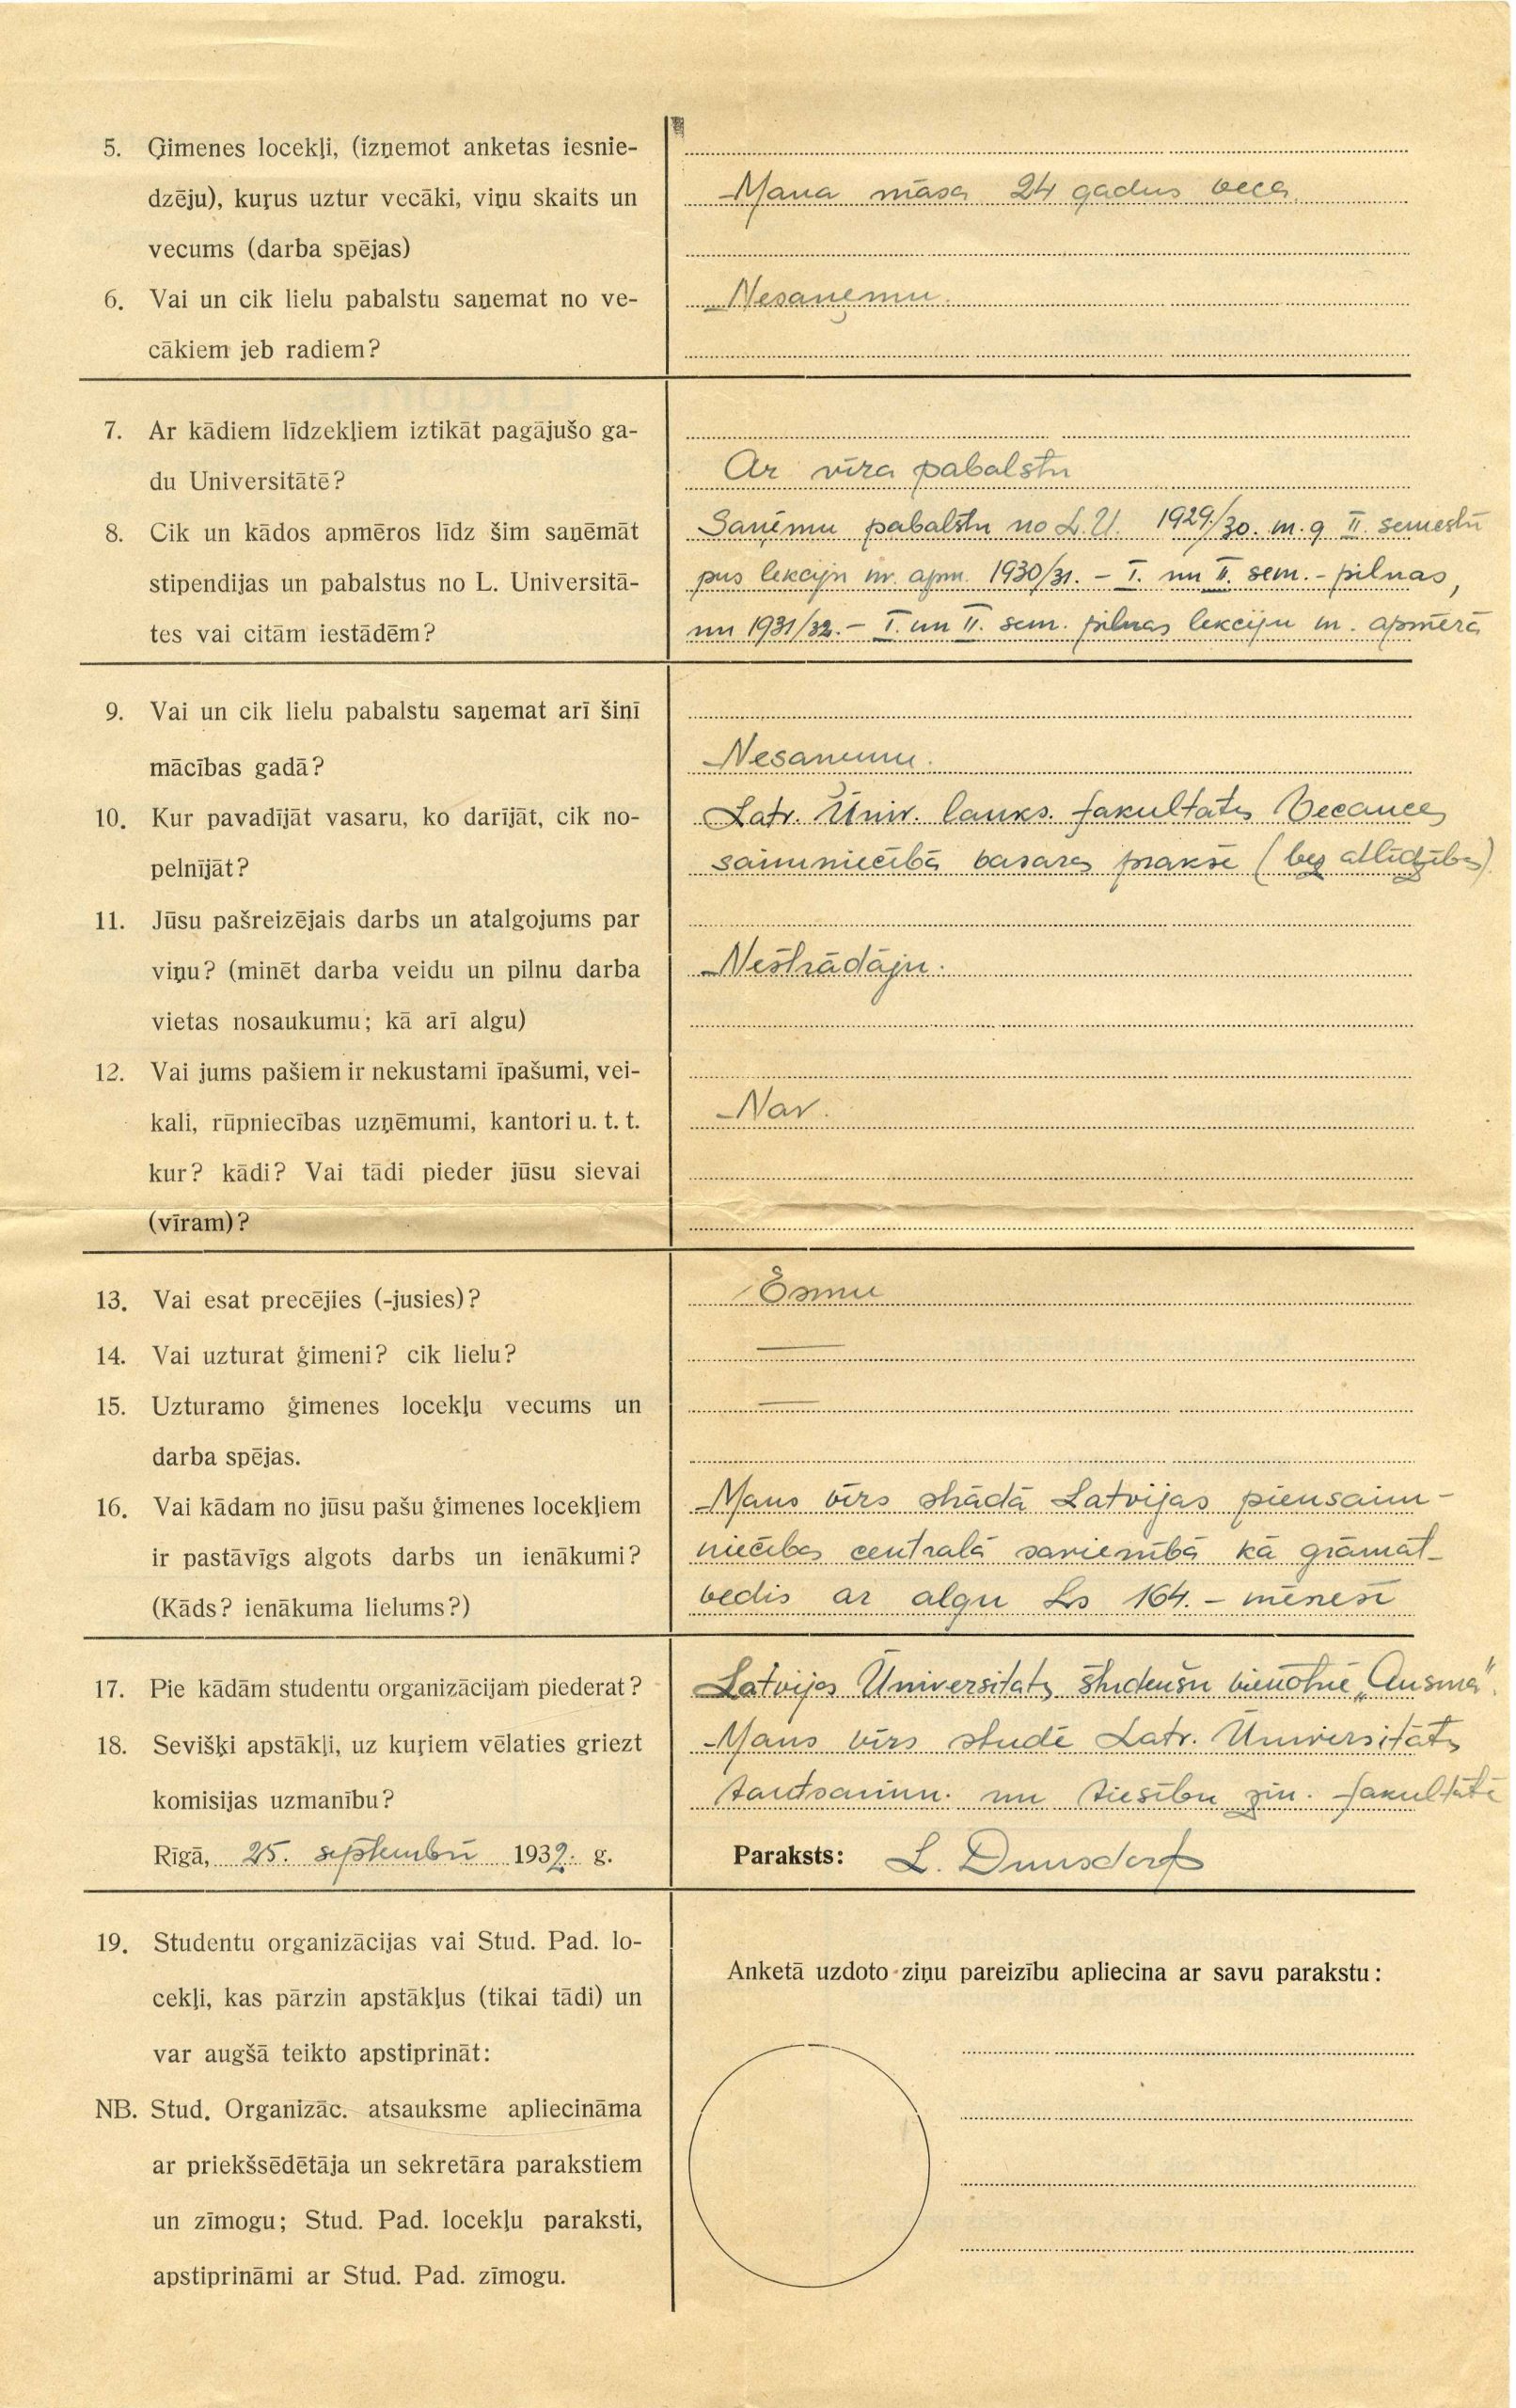 5. Ģimenes locekļi, (izņemot anketas iesnie-
dzēju), kuŗus uztur vecāki, viņu skaits un
vecums (darba spējas)
Mana māsa 24 gadus veca.
6. Vai un cik lielu pabalstu saņemat no ve-
cākiem jeb radiem?
Nesaņemu.
7. Ar kādiem līdzekļiem iztikāt pagājušo ga-
du Universitātē?
Ar vīra pabalstu
8. Cik un kādos apmēros līdz šim saņēmāt
stipendijas un pabalstus no L. Universitā-
tes vai citām iestādēm?
Saņēmu pabalstu no L. U. 1929./30. m. g II. semestrī
pus lekciju m. apm. 1930/31. – I. un II. sem. - pilnas,
un 1931/32. – I. un II. sem. pilnas lekciju m. apmērā
9. Vai un cik lielu pabalstu saņemat arī šinī
mācības gadā?
Nesaņemu.
10. Kur pavadījāt vasaru, ko darījāt, cik no-
pelnījāt?
Latv. Ūniv. lauks. fakultātes Vecauces
saimniecībā vasaras praksē (bez atlīdzības)
11. Jūsu pašreizējais darbs un atalgojums par
viņu? (minēt darba veidu un pilnu darba
vietas nosaukumu; kā arī algu)
Nestrādāju.
12. Vai jums pašiem ir nekustami īpašumi, vei-
kali, rūpniecības uzņēmumi, kantori u. t. t.
kur? kādi? Vai tādi pieder jūsu sievai
(vīram)?
Nav.
13. Vai esat precējies (-jusies)?
Esmu
14. Vai uzturat ģimeni? cik lielu?
—
15. Uzturamo ģimenes locekļu vecums un
darba spējas.
—
16. Vai kādam no jūsu pašu ģimenes locekļiem
ir pastāvīgs algots darbs un ienākumi?
(Kāds? ienākuma lielums?)
Mans vīrs strādā Latvijas piensaim-
niecības centralā savienībā kā grāmat-
vedis ar algu Ls 164. – mēnesī
17. Pie kādām studentu organizācijam piederat?
Latvijas Ūniversitates študenšu vienotnē „Ausma".
18. Sevišķi apstākļi, uz kuŗiem vēlaties griezt
komisijas uzmanību?
Mans vīrs studē Latv. Ūniversitātes
tautsaimn. un tiesību zin. fakultātē
Rīgā, 25. septembrī 1932. g.
Paraksts: L. Dunsdorf
19. Studentu organizācijas vai Stud. Pad. lo-
cekļi, kas pārzin apstākļus (tikai tādi) un
var augšā teikto apstiprināt:
NB. Stud. Organizāc. atsauksme apliecināma
ar priekšsēdētāja un sekretāra parakstiem
un zīmogu; Stud. Pad. locekļu paraksti,
apstiprināmi ar Stud. Pad. zīmogu.
Anketā uzdoto ziņu pareizību apliecina ar savu parakstu: